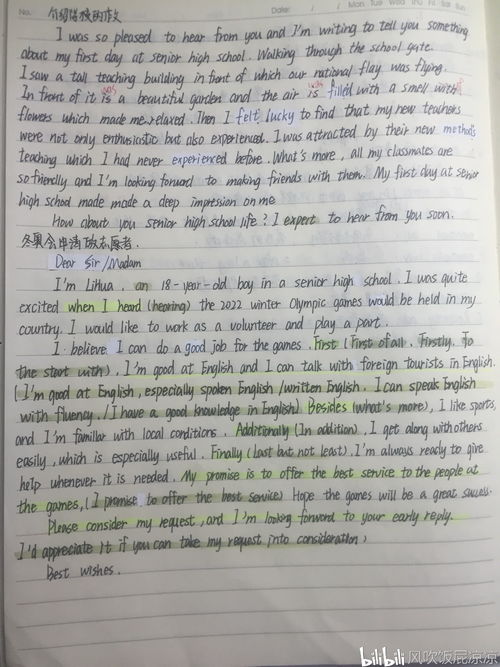 No. 介绍学校的作文 Date: / / Mon Tue Wed Thu Fri Sat Sun
I was so pleased to hear from you and I'm writing to tell you something
about my first day at senior high school. Walking through the school gate.
I saw a tall teaching building in front of which our national flay was flying.
In front of it is was a beautiful garden and the air is was filled with a smell with
flowers which made me relaxed. Then I felt lucky to find that my new teachers
were not only enthusiastic but also experienced. I was attracted by their new methods
teaching which I had never experienced before. What's more, all my classmates are
so friendly and I'm looking forward to making friends with them. My first day at senior
high school made made a deep impression on me
How about you senior high school life? I expert to hear from you soon.
冬奥会申请做志愿者.
Dear Sir/Madam
I'm Lihua, an 18-year-old boy in a senior high school. I was quite
excited when I heard (hearing) the 2022 winter Olympic games would be held in my
country. I would like to work as a volunteer and play a part.
I believe I can do a good job for the games. First (First of all. Firstly. To
the start with), I'm good at English and I can talk with foreign tourists in English.
(I'm good at English, especially spoken English /written English. I can speak English
with fluency. /I have a good knowledge in English) Besides (what's more), I like sports,
and I'm familiar with local conditions. Additionally (In addition), I get along with others
easily, which is especially useful. Finally (Last but not least), I'm always ready to give
help whenever it is needed. My promise is to offer the best service to the people at
the games, (I promise to offer the best service) Hope the games will be a great success.
Please consider my request, and I'm looking forward to your early reply.
(I'd appreciate it if you can take my request into consideration)
Best wishes.
bilibili 风吹饭屁凉凉